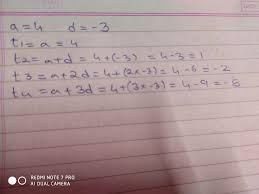 a=4 d=-3
t1=a=4
t2=a+d=4+(-3)=4-3=1
t3=a+2d=4+(2x-3)=4-6=-2
t4=a+3d=4+(3x-3)=4-9=-5
REDMI NOTE 7 PRO
AI DUAL CAMERA